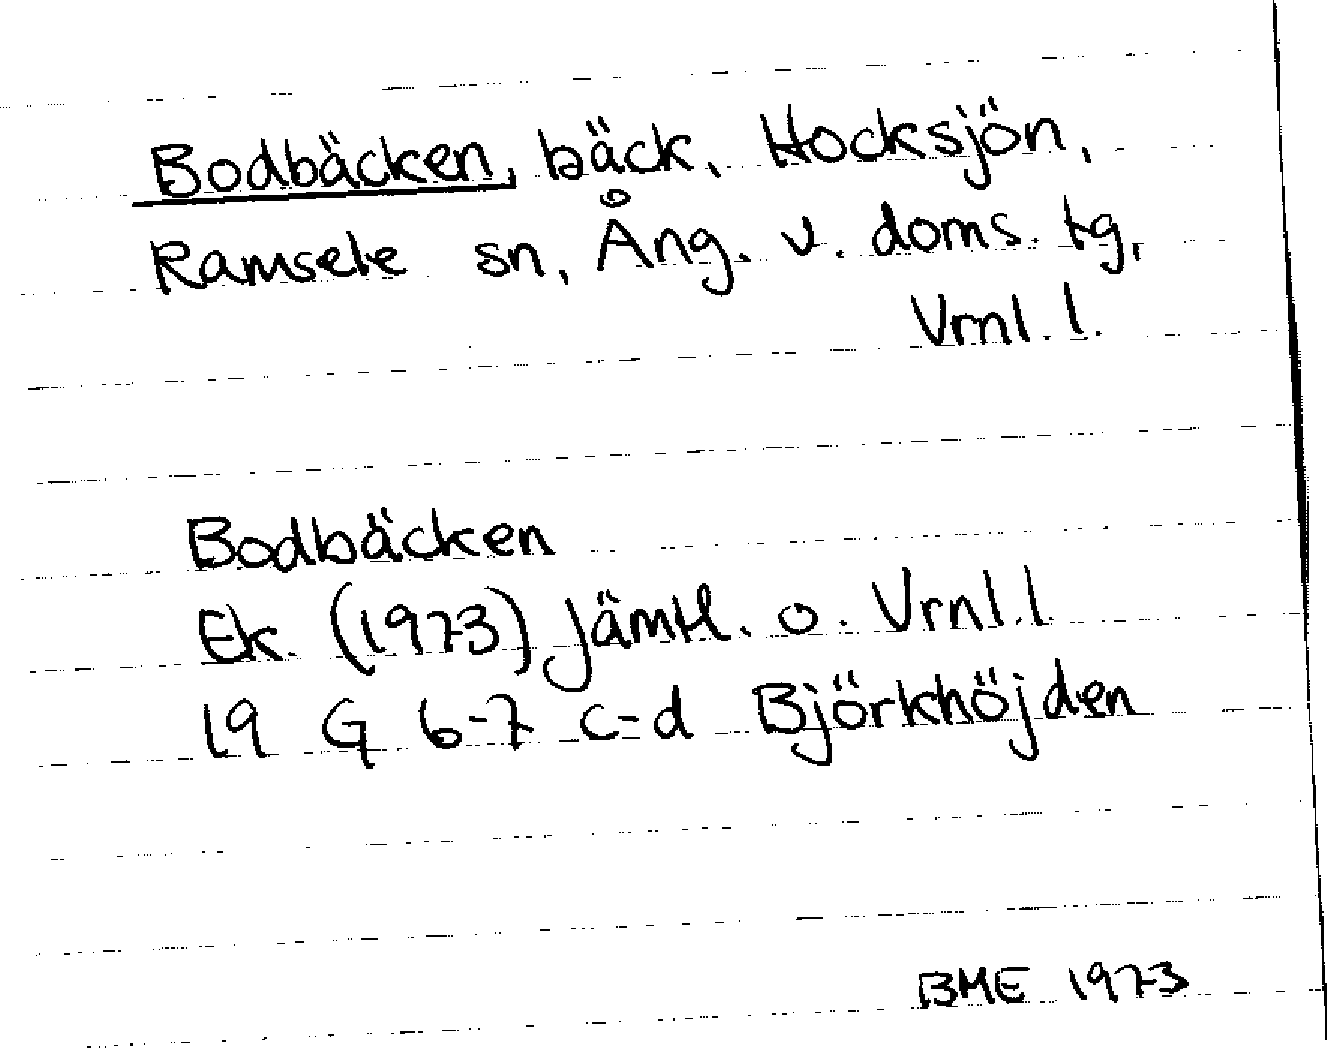 Bodbäcken, bäck, Hocksjön,
Ramsele sn, Ång. v. doms. tg,
Vrnl. l.
Bodbäcken
Ek. (1973) Jämtl. o. Vrnl. l.
19 G 6-7 c-d Björkhöjden
BME 1973